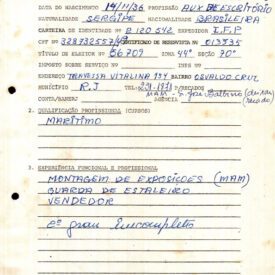 DATA DO NASCIMENTO 14/11/36 PROFISSÃO AUX. DE ESCRITÓRIO
NATURALIDADE SERGIPE NACIONALIDADE BRASILEIRA
CARTEIRA DE IDENTIDADE Nº EXPEDIDOR I.F.P
CPF CERTIFICADO DE RESERVISTA Nº
TÍTULO DE ELEITOR Nº 66709 ZONA 44ª SEÇÃO 70ª
IMPOSTO SOBRE SERVIÇO Nº INSS Nº
ENDEREÇO TRAVESSA VITALINA 194 BAIRRO OSVALDO CRUZ
MUNICÍPIO RJ TEL: P/RECADOS
CONTA/BANERJ AGÊNCIA MAM -
2. QUALIFICAÇÃO PROFISSIONAL (CURSOS)
MARÍTIMO
3. EXPERIÊNCIA FUNCIONAL E PROFISSIONAL
MONTAGEM DE EXPOSIÇÕES (MAM)
GUARDA DE ESTALEIRO
VENDEDOR
2º grau Incompleto